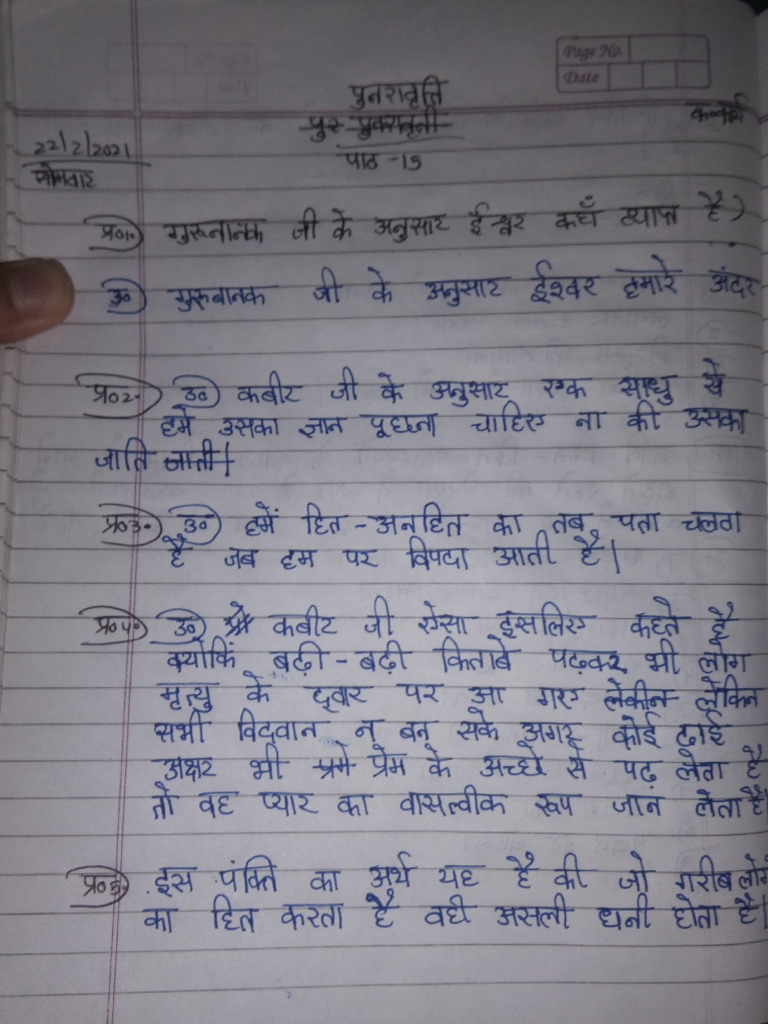 Page No.
Date
पुनरावृत्ति
पुर पुनरावृती
22/2/2021
सोमवार
पाठ -15
प्र०1॰ गुरूनानक जी के अनुसार ईश्वर कहाँ व्याप्त है?
उ० गुरूनानक जी के अनुसार ईश्वर हमारे अंदर
प्र०2॰ उ० कबीर जी के अनुसार एक साधु से
हमें उसका ज्ञान पूछना चाहिए ना की उसका
जाति जाती।
प्र०3॰ उ० हमें हित-अनहित का तब पता चलता
है जब हम पर विपदा आती है।
प्र०4॰ उ० कबीर जी ऐसा इसलिए कहते है
क्योकिं बढ़ी-बढ़ी किताबे पढ़कर भी लोग
मृत्यु के द्वार पर आ गए लेकीन लेकिन
सभी विद्वान न बन सके अगर कोई ढाई
अक्षर भी प्रमे प्रेम के अच्छे से पढ़ लेता है
तो वह प्यार का वास्त्वीक रूप जान लेता है।
प्र०5॰ इस पंक्ति का अर्थ यह है की जो गरीब लोगो
का हित करता है वही असली धनी होता है।